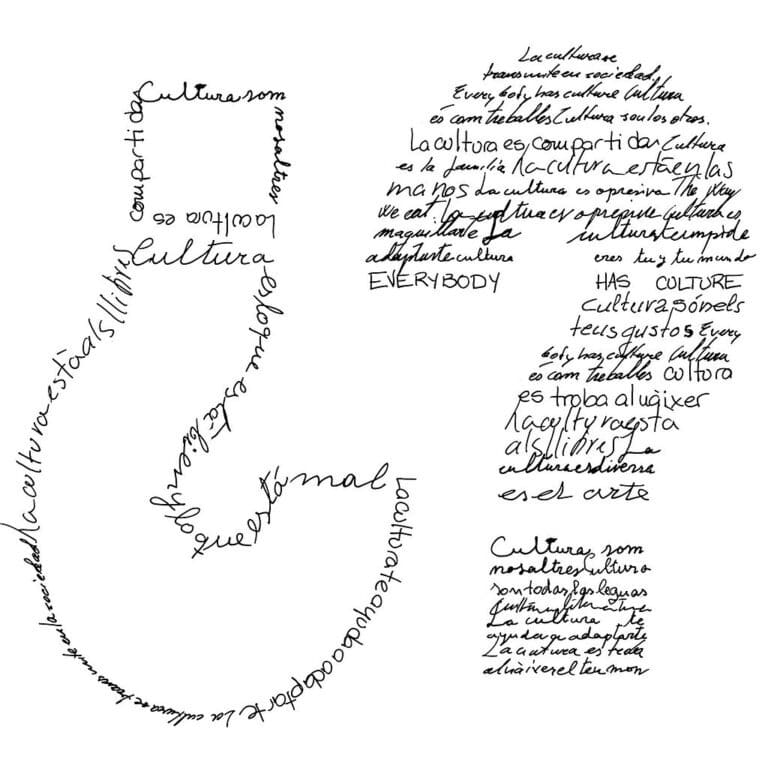 Cultura som
nosaltres
La cultura es
compartidas
Cultura
es lo que está bien y lo que está mal
La cultura te ayuda a adaptarte La cultura se transmite en la sociedad La cultura està als llibres
La cultura se
transmite en sociedad.
Everybody has culture Cultura
és com treballes Cultura son los otros.
La cultura es, compartidas Cultura
es la familia La cultura está en las
manos La cultura es opresiva The way
we eat. La cultura es opresive Cultura es
maquillarse La cultura
adaptarte cultura eres tu y tu mundo
EVERYBODY HAS CULTURE
Cultura, són els
teus gustos Every
body has culture Cultura
és com treballes cultura
es troba al uàixer
La cultura esta
als llibres La
cultura es diversa
es el arte
Cultura, som
nosaltres Cultura
son todas las leguas
La cultura te
ayuda a adaptarte
La cultura es
al uàixer el teu mon